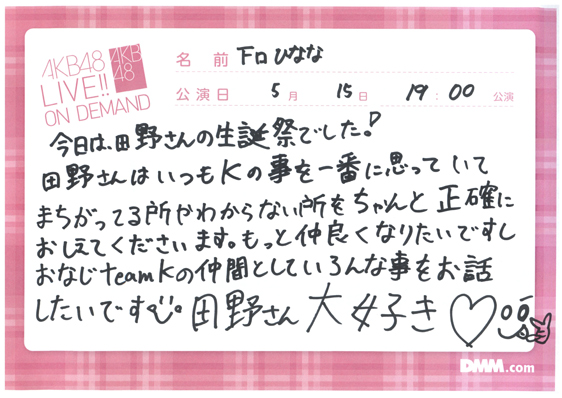 AKB48
LIVE!!
ON DEMAND
AKB
48
名前 下口ひなな
公演日 5月 15日 19:00 公演
今日は、田野さんの生誕祭でした!
田野さんはいつもKの事を一番に思っていて
まちがってる所やわからない所をちゃんと正確に
おしえてくださいます。もっと仲良くなりたいですし
おなじteamKの仲間としていろんな事をお話
したいです。田野さん大好き♡
DMM.com